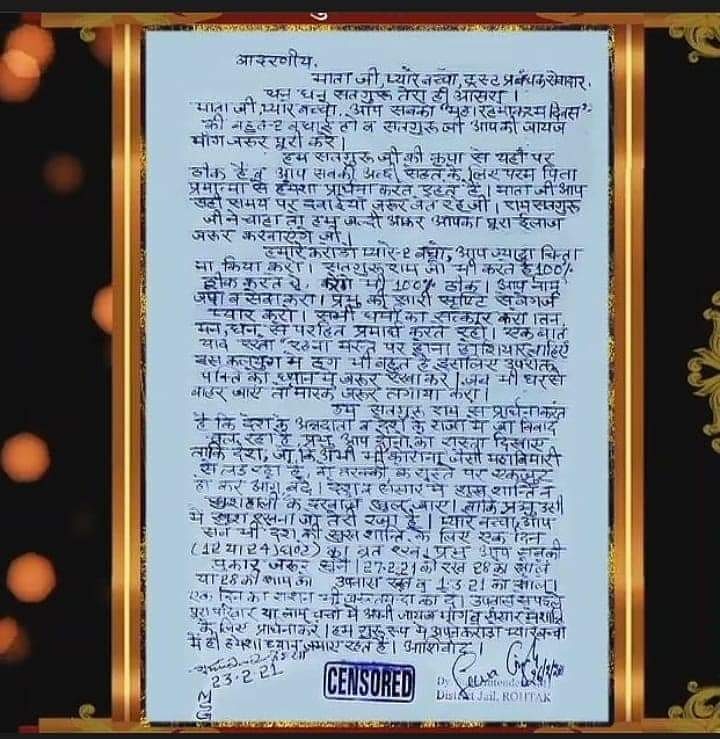 आदरणीय,
माता जी, प्यारे बच्चों, ट्रस्ट प्रबंधक सेवादार,
धन धन सतगुरू तेरा ही आसरा।
माता जी, प्यारे बच्चों, आप सबको "महा रहमोकरम दिवस"
की बहुत-2 बधाई हो व सतगुरू जी आपकी जायज
मांग जरूर पूरी करें।
हम सतगुरू जी की कृपा से यहाँ पर
ठीक हैं व आप सबकी अच्छी सेहत के लिए परम पिता
प्रमात्मा से हमेशा प्रार्थना करते रहते हैं। माता जी आप
सही समय पर दवाईयां जरूर लेते रहें जी। राम सतगुरू
जी ने चाहा तो हम जल्दी आकर आपका पूरा ईलाज
जरूर करवाएंगे जी।
हमारे करोड़ों प्यारे-2 बच्चों, आप ज्यादा चिंता
ना किया करो। सतगुरू राम जी भी करते हैं 100%
ठीक करते हैं, करेंगे भी 100% ठीक। आप नाम
जपो व सेवा करो। प्रभु की सारी सृष्टि से बेगर्ज
प्यार करो। सभी धर्मों का सत्कार करो। तन,
मन, धन, से परहित प्रमार्थ करते रहो। एक बात
याद रखो "रहना मस्त पर होना होशियार चाहिए"
इस कलयुग में ठग भी बहुत हैं इसलिए उपरोक्त
पंक्ति को ध्यान में जरूर रखा करें। जब भी घर से
बाहर जाएं तो मास्क जरूर लगाया करो।
हम सतगुरू राम से प्रार्थना करते
हैं कि देश के अन्नदाता व देश के राजा में जो विवाद
चल रहा है, प्रभु आप दोनों को रास्ता दिखाएं
ताकि देश, जो कि अभी भी कोरोना जैसी महाबिमारी
से लड़ रहा है, वो तरक्की के रास्ते पर एकजुट
हो कर आगे बढ़े। देश व संसार में सुख शान्ति व
खुशहाली के दरवाजे खुल जाएं। ताकि प्रभु उसी
में खुश रहना जो तेरी रजा है। प्यारे बच्चो, आप
सब भी देश की सुख शान्ति के लिए एक दिन
(12 या 24) घंटे का व्रत रखें, प्रभु आप सबकी
पुकार जरूर सुनें। 27.2.21 को रख 28 को खोलें
या 28 को शाम को उपवास रखें व 1.3.21 को खोलें।
एक दिन का राशन भी जरूरतमंदों को दें। उपवास से पहले
पूरा परिवार या नाम चर्चा में अपनी जायज मांग व संसार में शान्ति
के लिए प्रार्थना करें। हम गुरू रूप में अपने करोड़ों प्यारे बच्चों
में ही हमेशा ध्यान जमाए रखते हैं। आशीर्वाद।
23-2-21
MSG
CENSORED
District Jail, ROHTAK